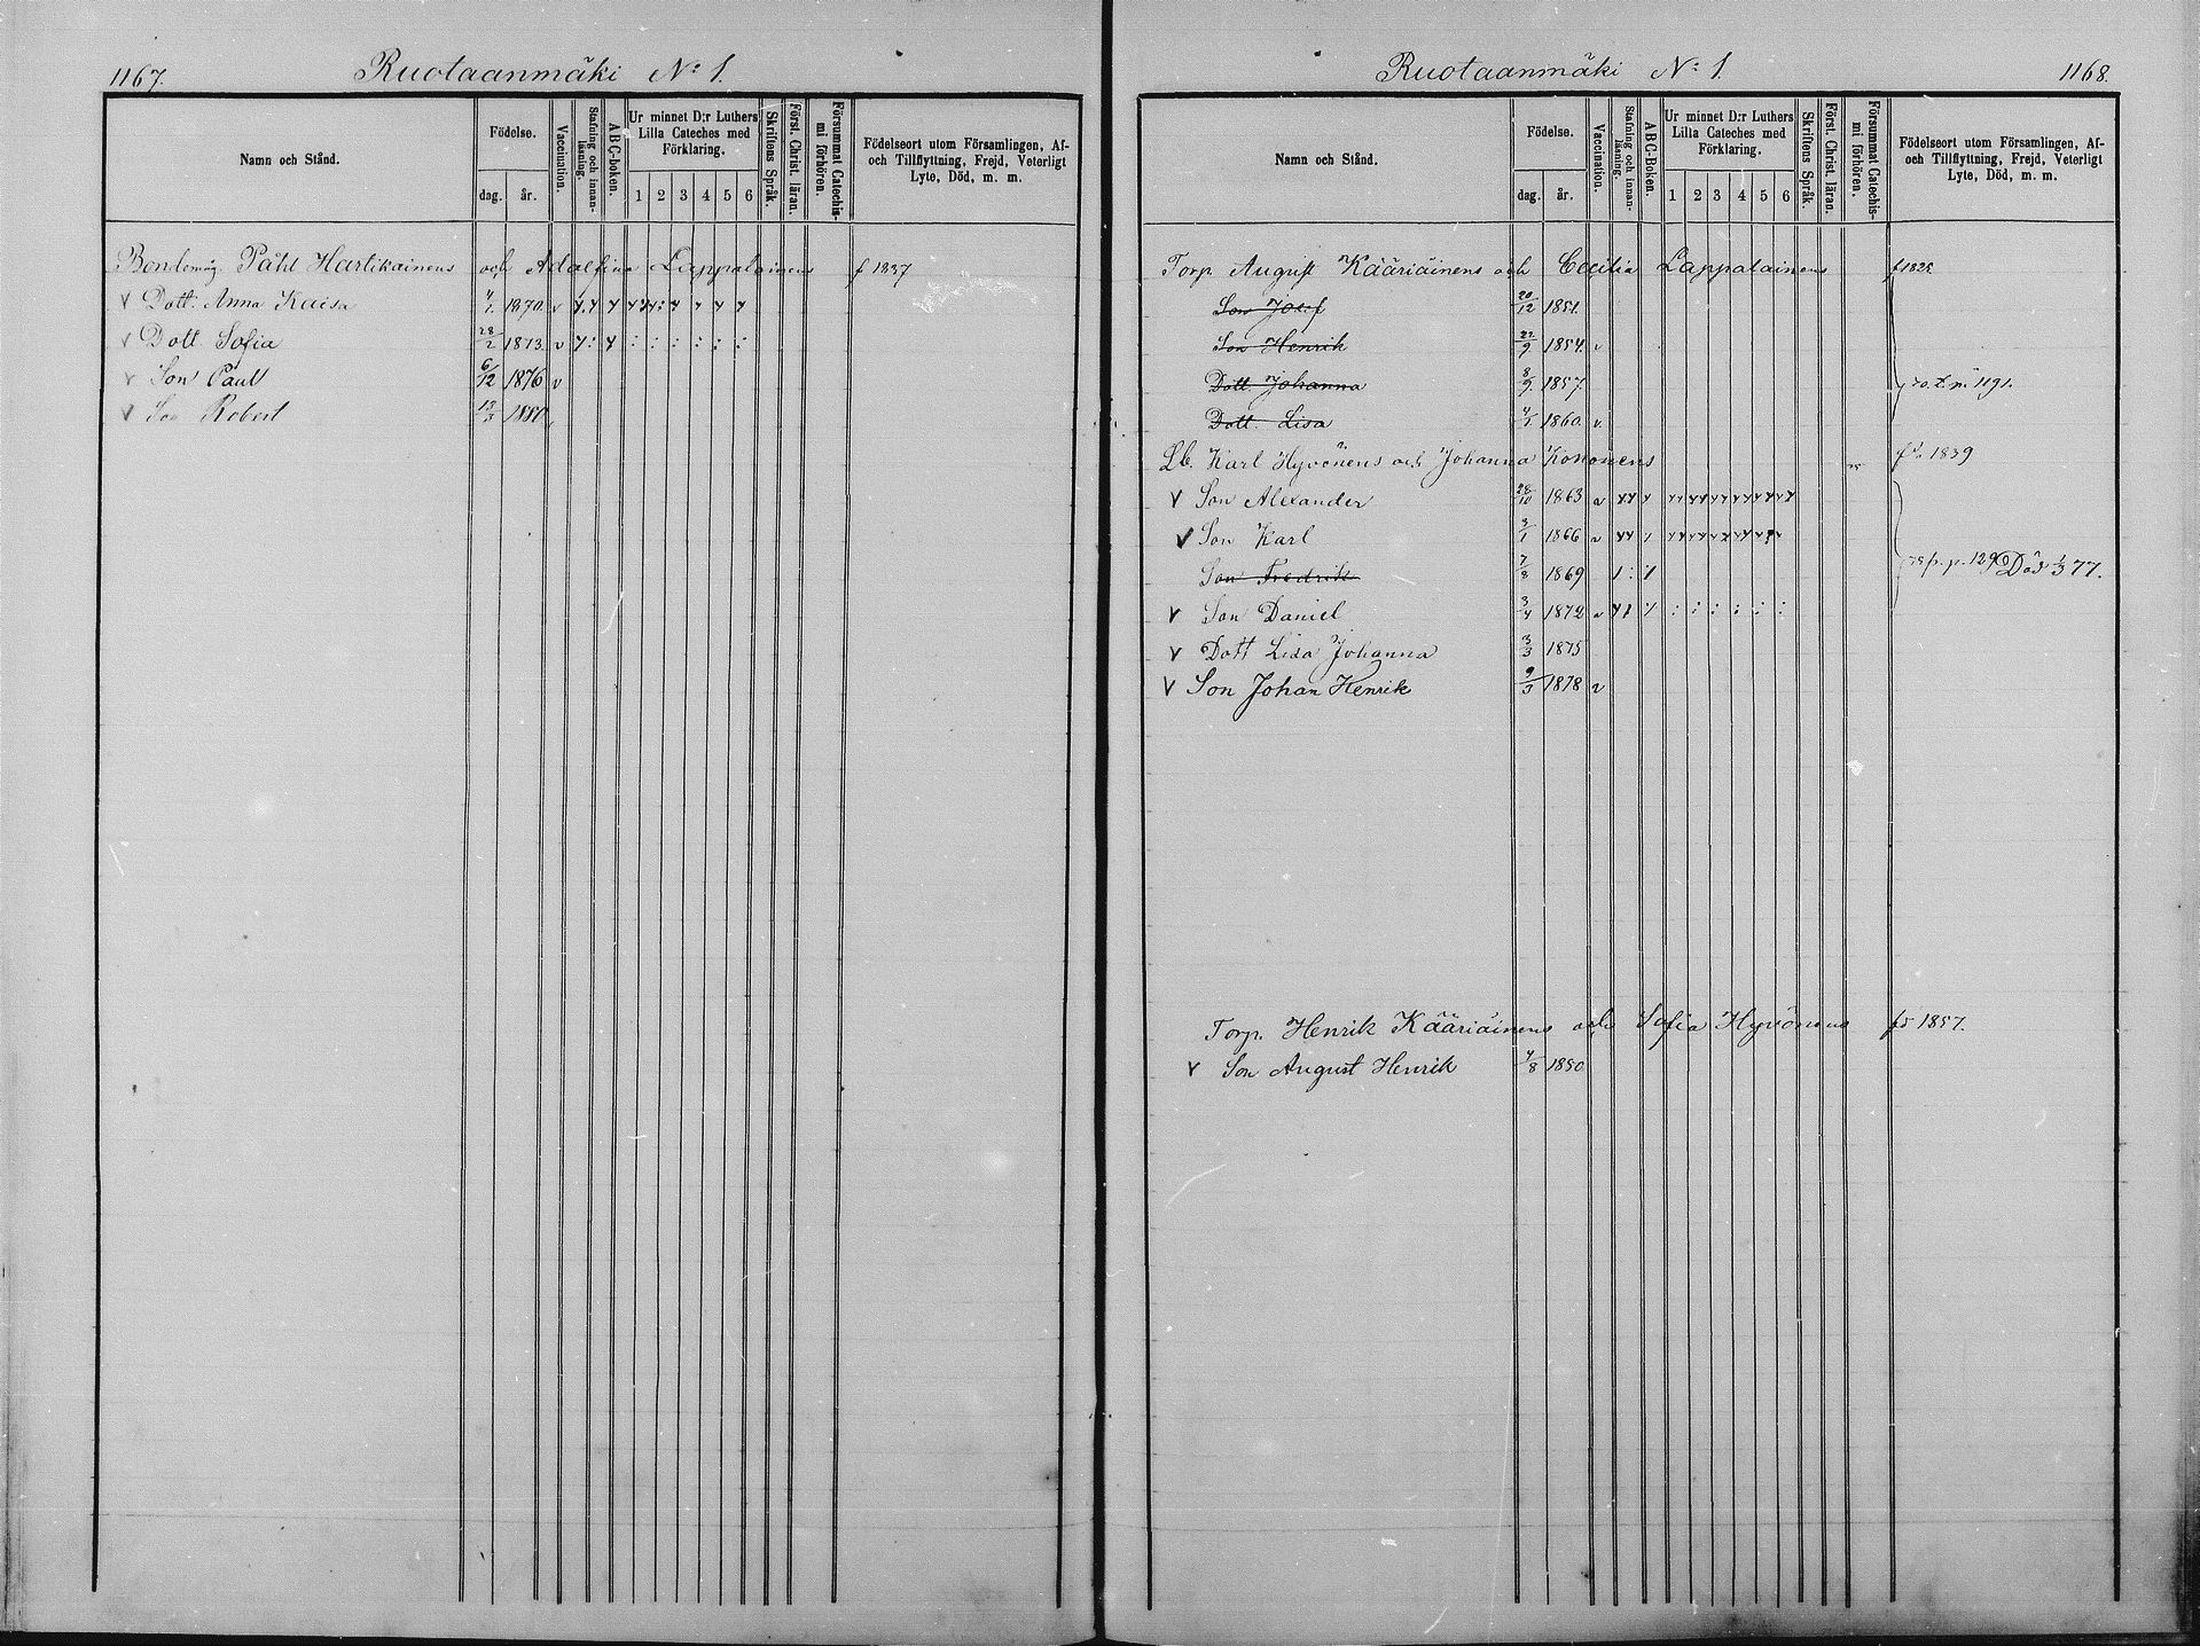 1167.
Ruotaanmäki No 1.
Namn och Stånd.
Födelse.
dag.
år.
Vaccination.
Stafning och innan-läsning.
ABC-boken.
Ur minnet D:r Luthers
Lilla Cateches med
Förklaring.
1 2 3 4 5 6
Skriftens Språk.
Först. Christ. läran.
Försummat Catechis-
mi förhören.
Födelseort utom Församlingen, Af-
och Tillflyttning, Frejd, Veterligt
Lyte, Död, m. m.
Påhl Hartikainens och Adalfina Lappalainens f 1837
v Dott. Anna Kaisa 1870. v
v Dott Sofia 28/2 1873. v
v Son Paul 6/12 1876 v
v Son Robert 13/3 1880
Ruotaanmäki No 1.
1168.
Namn och Stånd.
Födelse.
dag.
år.
Vaccination.
Stafning och innan-läsning.
ABC-Boken.
Ur minnet D:r Luthers
Lilla Cateches med
Förklaring.
1 2 3 4 5 6
Skriftens Språk.
Först. Christ. läran.
Försummat Catechis-
mi förhören.
Födelseort utom Församlingen, Af-
och Tillflyttning, Frejd, Veterligt
Lyte, Död, m. m.
Torp. August Kääriäinens och Cecilia Lappalainens
Son Josef 20/12 1851.
Son Henrik 22/9 1854. v
Dott. Johanna 8/9 1857. 1191.
Dott. Lisa 1860. v.
Lb. Karl Hyvönens och Johanna Kononens 1839
v Son Alexander 28/10 1863 v
v Son Karl 3/1 1866 v
Son Fredrik 7/8 1869 Död 1/3 77.
v Son Daniel 3/4 1872 v
v Dott Lisa Johanna 3/3 1875
v Son Johan Henrik 9/3 1878 v
Torp. Henrik Kääriäinens och Sofia Hyvönens 1857.
v Son August Henrik 4/8 1880